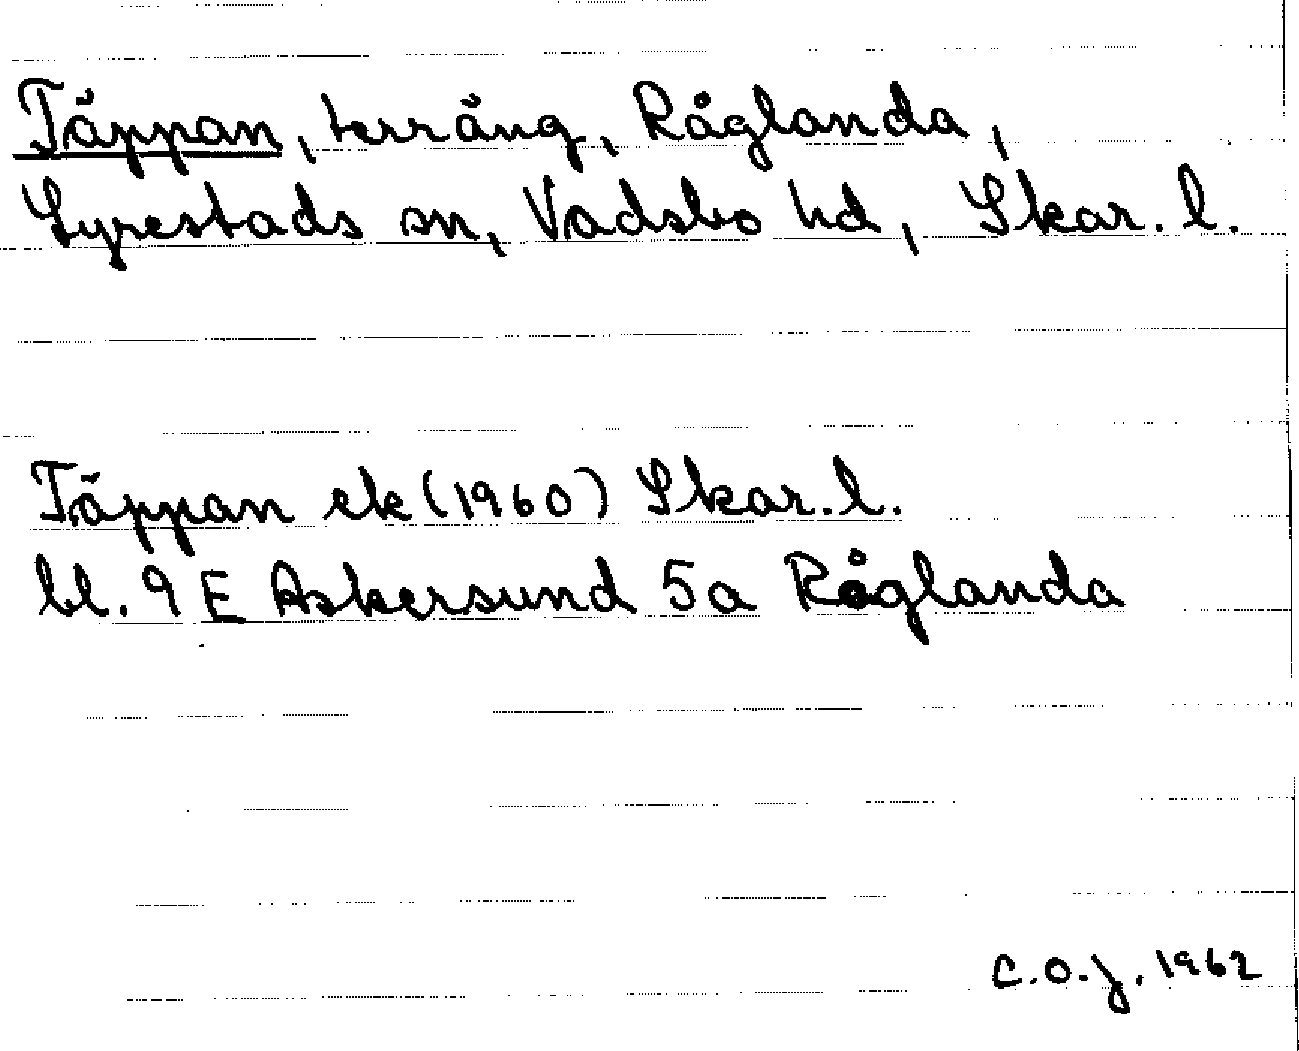 Täppan, terräng, Råglanda,
Lyrestads sn, Vadsbo hd, Skar. l.
Täppan ek (1960) Skar. l.
bl. 9 E Askersund 5a Råglanda
C.O.J. 1962